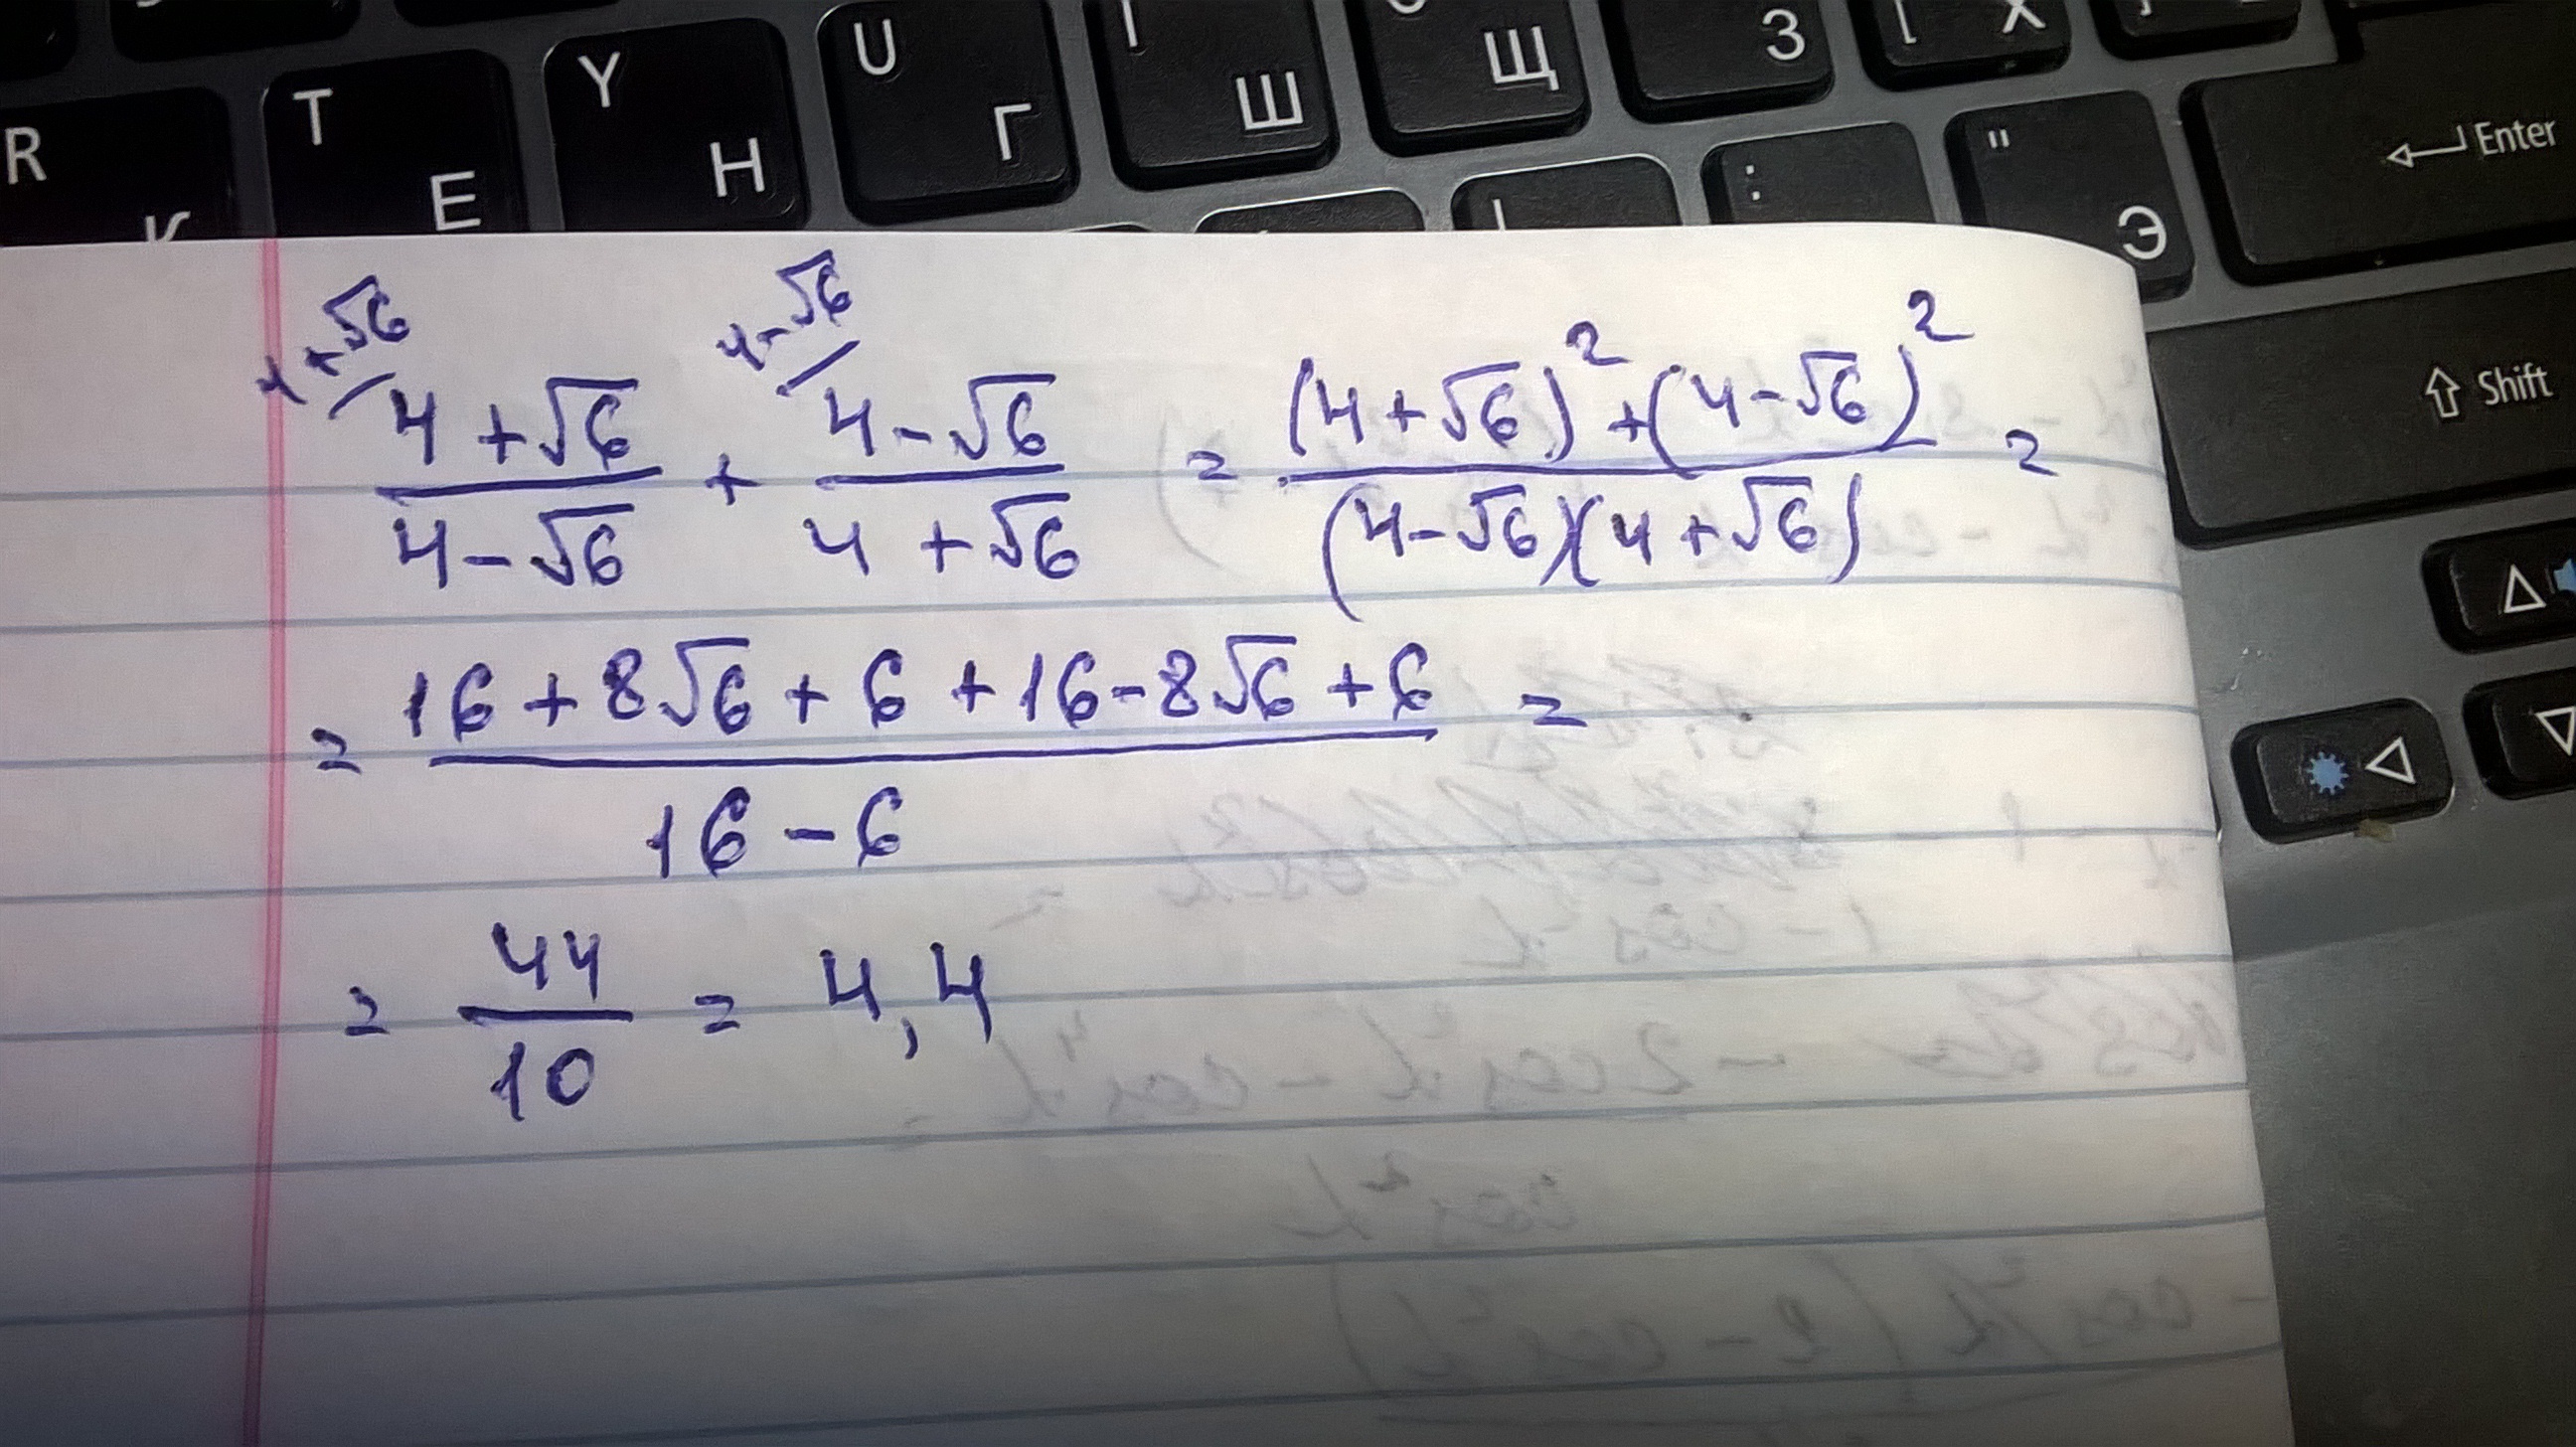 R T Y U I Ш Щ З [ Х
Е Н Г : " Э Enter
Shift
4+√6 4-√6
4+√6/4-√6 + 4-√6/4+√6 = (4+√6)²+(4-√6)²/(4-√6)(4+√6) =
= 16+8√6+6+16-8√6+6/16-6 =
= 44/10 = 4,4